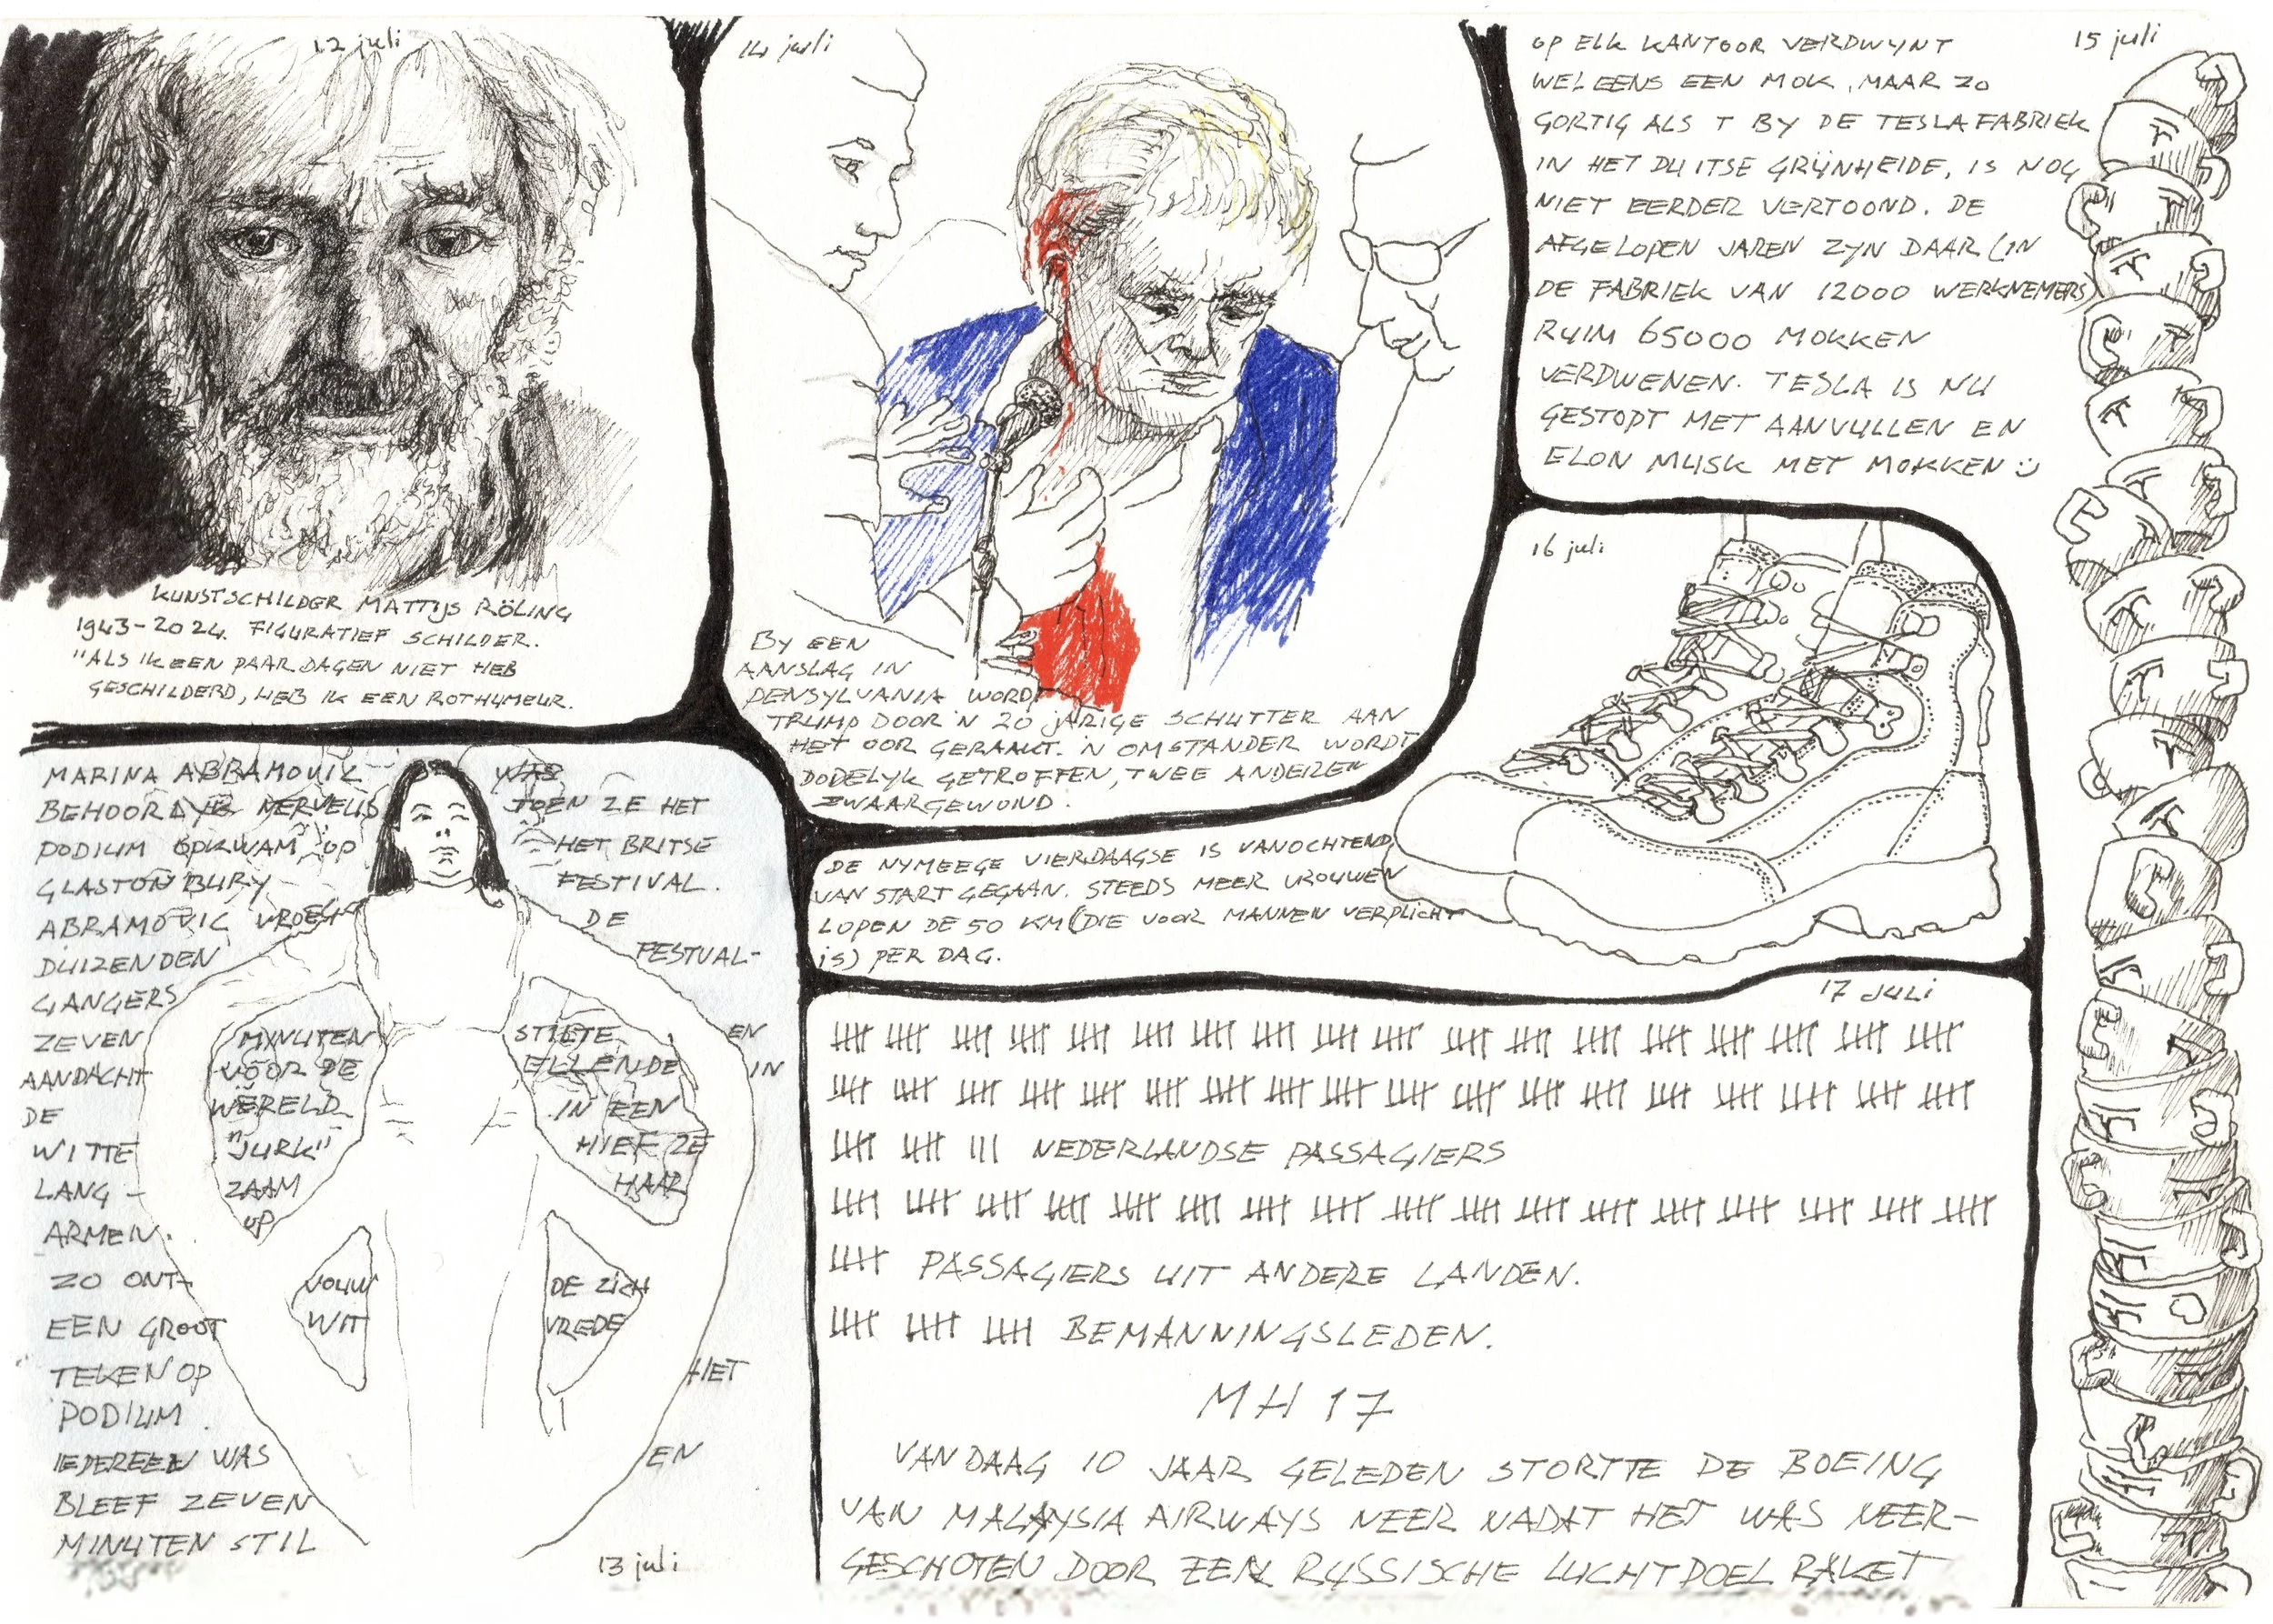 12 juli
KUNSTSCHILDER MATTIJS RÖLING
1943-2024. FIGURATIEF SCHILDER.
"ALS IK EEN PAAR DAGEN NIET HEB
GESCHILDERD, HEB IK EEN ROTHUMEUR.
14 juli
BY EEN
AANSLAG IN
PENSYLVANIA WORD
TRUMP DOOR 'N 20 JARIGE SCHUTTER AAN
HET OOR GERAAKT. 'N OMSTANDER WORDT
DODELYK GETROFFEN, TWEE ANDEREN
ZWAARGEWOND.
15 juli
OP ELK KANTOOR VERDWYNT
WEL EENS EEN MOK, MAAR ZO
GORTIG ALS T BY DE TESLAFABRIEK
IN HET DUITSE GRÜNHEIDE, IS NOG
NIET EERDER VERTOOND. DE
AFGELOPEN JAREN ZYN DAAR (IN
DE FABRIEK VAN 12000 WERKNEMERS)
RUIM 65000 MOKKEN
VERDWENEN. TESLA IS NU
GESTOPT MET AANVULLEN EN
ELON MUSK MET MOKKEN
16 juli
DE NYMEEGE VIERDAAGSE IS VANOCHTEND
VAN START GEGAAN. STEEDS MEER VROUWEN
LOPEN DE 50 KM (DIE VOOR MANNEN VERPLICHT
IS) PER DAG.
MARINA ABRAMOVIC WAS
BEHOORLYK NERVEUS TOEN ZE HET
PODIUM OPKWAM OP HET BRITSE
GLASTONBURY FESTIVAL.
ABRAMOVIC VROEG DE
DUIZENDEN FESTVAL-
GANGERS
ZEVEN MINUTEN STILTE EN
AANDACHT VOOR DE ELLENDE IN
DE WERELD IN EEN
WITTE "JURK" HIEF ZE
LANG- ZAAM HAAR
ARMEN. OP
ZO ONT- VOUW DE ZICH
EEN GROOT WIT VREDE
TEKEN OP HET
PODIUM.
IEDEREEN WAS EN
BLEEF ZEVEN
MINUTEN STIL
13 juli
17 JULI
NEDERLANDSE PASSAGIERS
PASSAGIERS UIT ANDERE LANDEN.
BEMANNINGSLEDEN.
MH 17
VANDAAG 10 JAAR GELEDEN STORTTE DE BOEING
VAN MALAYSIA AIRWAYS NEER NADAT HET WAS NEER-
GESCHOTEN DOOR EEN RUSSISCHE LUCHTDOEL RAKET